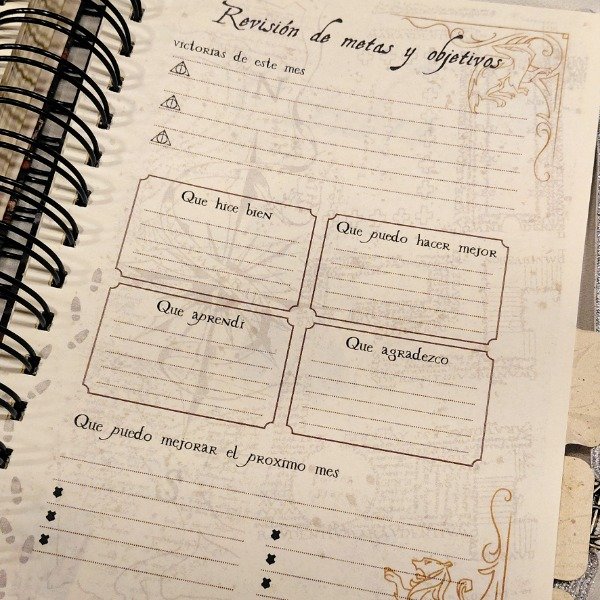 Revisión de metas y objetivos
victorias de este mes
Que hice bien
Que puedo hacer mejor
Que aprendí
Que agradezco
Que puedo mejorar el proximo mes